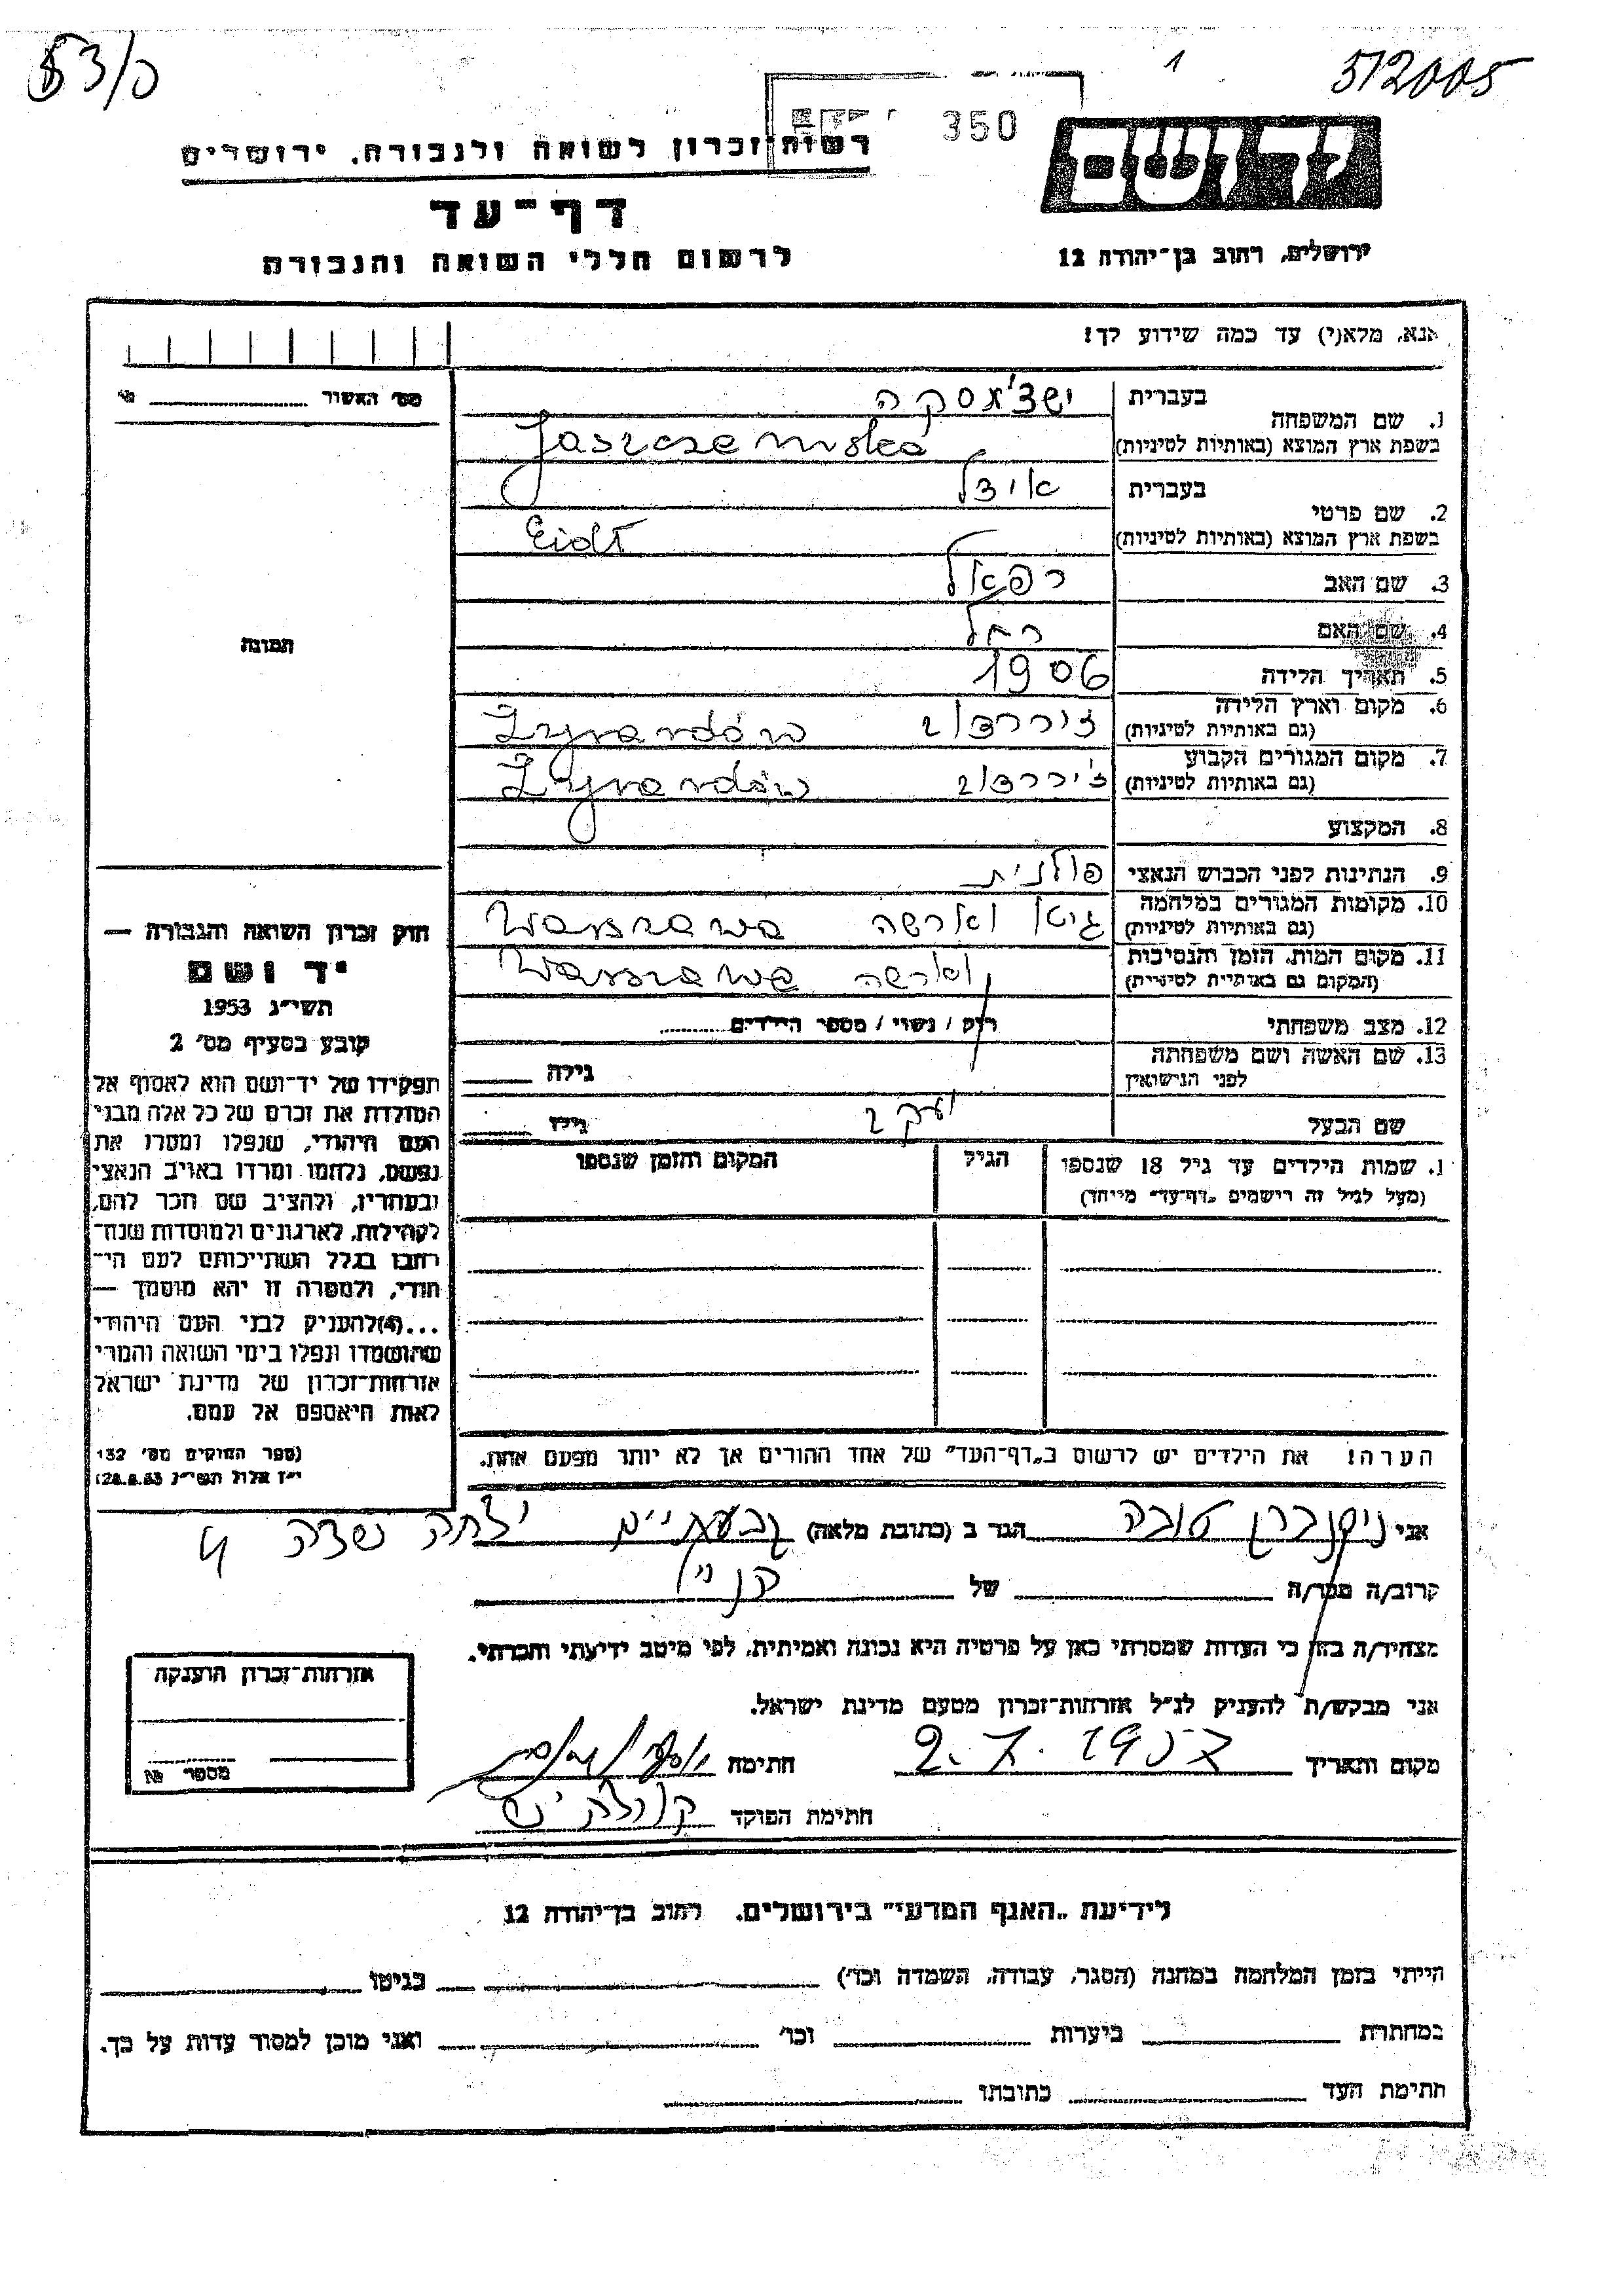 53/0
1
512005
350
יד ושם
רשות זכרון לשואה ולגבורה, ירושלים
דף־עד
לרשום חללי השואה והגבורה
ירושלים, רחוב בן־יהודה 12
אנא, מלא(י) עד כמה שידוע לך!
מס׳ האשור
1. שם המשפחה
בעברית
בשפת ארץ המוצא (באותיות לטיניות)
Jaszczemska
2. שם פרטי
בעברית אידל
בשפת ארץ המוצא (באותיות לטיניות) Eidl
3. שם האב רפאל
4. שם האם רחל
5. תאריך הלידה 1906
6. מקום וארץ הלידה (גם באותיות לטיניות) זיררדוב Żyrardów
7. מקום המגורים הקבוע (גם באותיות לטיניות) ז׳יררדוב Żyrardów
8. המקצוע
9. הנתינות לפני הכבוש הנאצי פולנית
10. מקומות המגורים במלחמה (גם באותיות לטיניות) גיטו ווארשה Warszawa
11. מקום המות, הזמן והנסיבות (המקום גם באותיות לטיניות) ווארשה Warszawa
12. מצב משפחתי רוק / נשוי / מספר הילדים
13. שם האשה ושם משפחתה לפני הנישואין גילה
שם הבעל יעקב גילו
1. שמות הילדים עד גיל 18 שנספו
(מעל לגיל זה רישמים „דף־עד״ מייחד)
הגיל
המקום והזמן שנספו
הערה! את הילדים יש לרשום ב„דף־העד״ של אחד ההורים אך לא יותר מפעם אחת.
תמונה
חוק זכרון השואה והגבורה —
יד ושם
תשי״ג 1953
קובע בסעיף מס׳ 2
תפקידו של יד־ושם הוא לאסוף אל
המולדת את זכרם של כל אלה מבני
העם היהודי, שנפלו ומסרו את
נפשם, נלחמו ומרדו באויב הנאצי
ובעוזריו, ולהציב שם וזכר להם,
לקהילות, לארגונים ולמוסדות שנח־
רבו בגלל השתייכותם לעם הי־
הודי, ולמטרה זו יהא מוסמך —
...(4)להעניק לבני העם היהודי
שהושמדו ונפלו בימי השואה והמרי
אזרחות־זכרון של מדינת ישראל
לאות היאספם אל עמם.
(ספר החוקים מס׳ 132
י״ז אלול תשי״ג 28.8.53)
אני טובה הגר ב (כתובת מלאה) גבעתיים
קרוב/ה מכר/ה של
מצהיר/ה בזה כי העדות שמסרתי כאן על פרטיה היא נכונה ואמיתית, לפי מיטב ידיעתי והכרתי.
אני מבקש/ת להעניק לנ״ל אזרחות־זכרון מטעם מדינת ישראל.
מקום ותאריך 2.7.1957 חתימה
חתימת הפוקד
אזרחות־זכרון הוענקה
מספר №
לידיעת „האגף המדעי״ בירושלים, רחוב בן־יהודה 12
הייתי בזמן המלחמה במחנה (הסגר, עבודה, השמדה וכו׳) בגיטו
במחתרת ביערות וכו׳ ואני מוכן למסור עדות על כך.
חתימת העד כתובתו